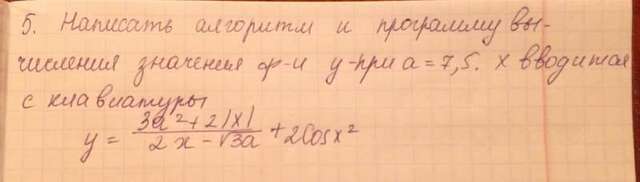 5. Написать алгоритм и программу вы-
числения значения ф-и y-при a = 7,5. x вводится
с клавиатуры
y = \frac{3a^2+2|x|}{2x-\sqrt{3a}} + 2Cosx^2